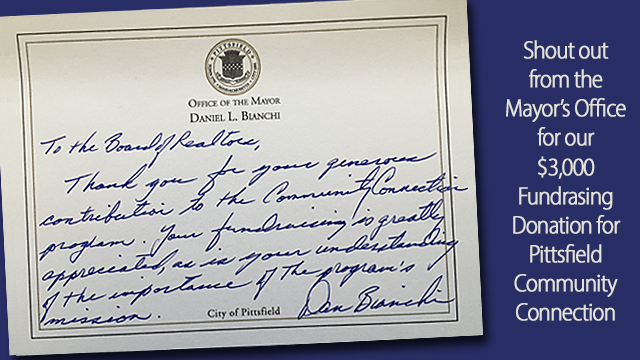 PITTSFIELD
OFFICE OF THE MAYOR
DANIEL L. BIANCHI
To the Board of Realtors,
Thank you for your generous
contribution to the Community Connection
program. Your fundraising is greatly
appreciated, as is your understanding
of the importance of the program's
mission.
City of Pittsfield
Dan Bianchi
Shout out
from the
Mayor's Office
for our
$3,000
Fundrasing
Donation for
Pittsfield
Community
Connection